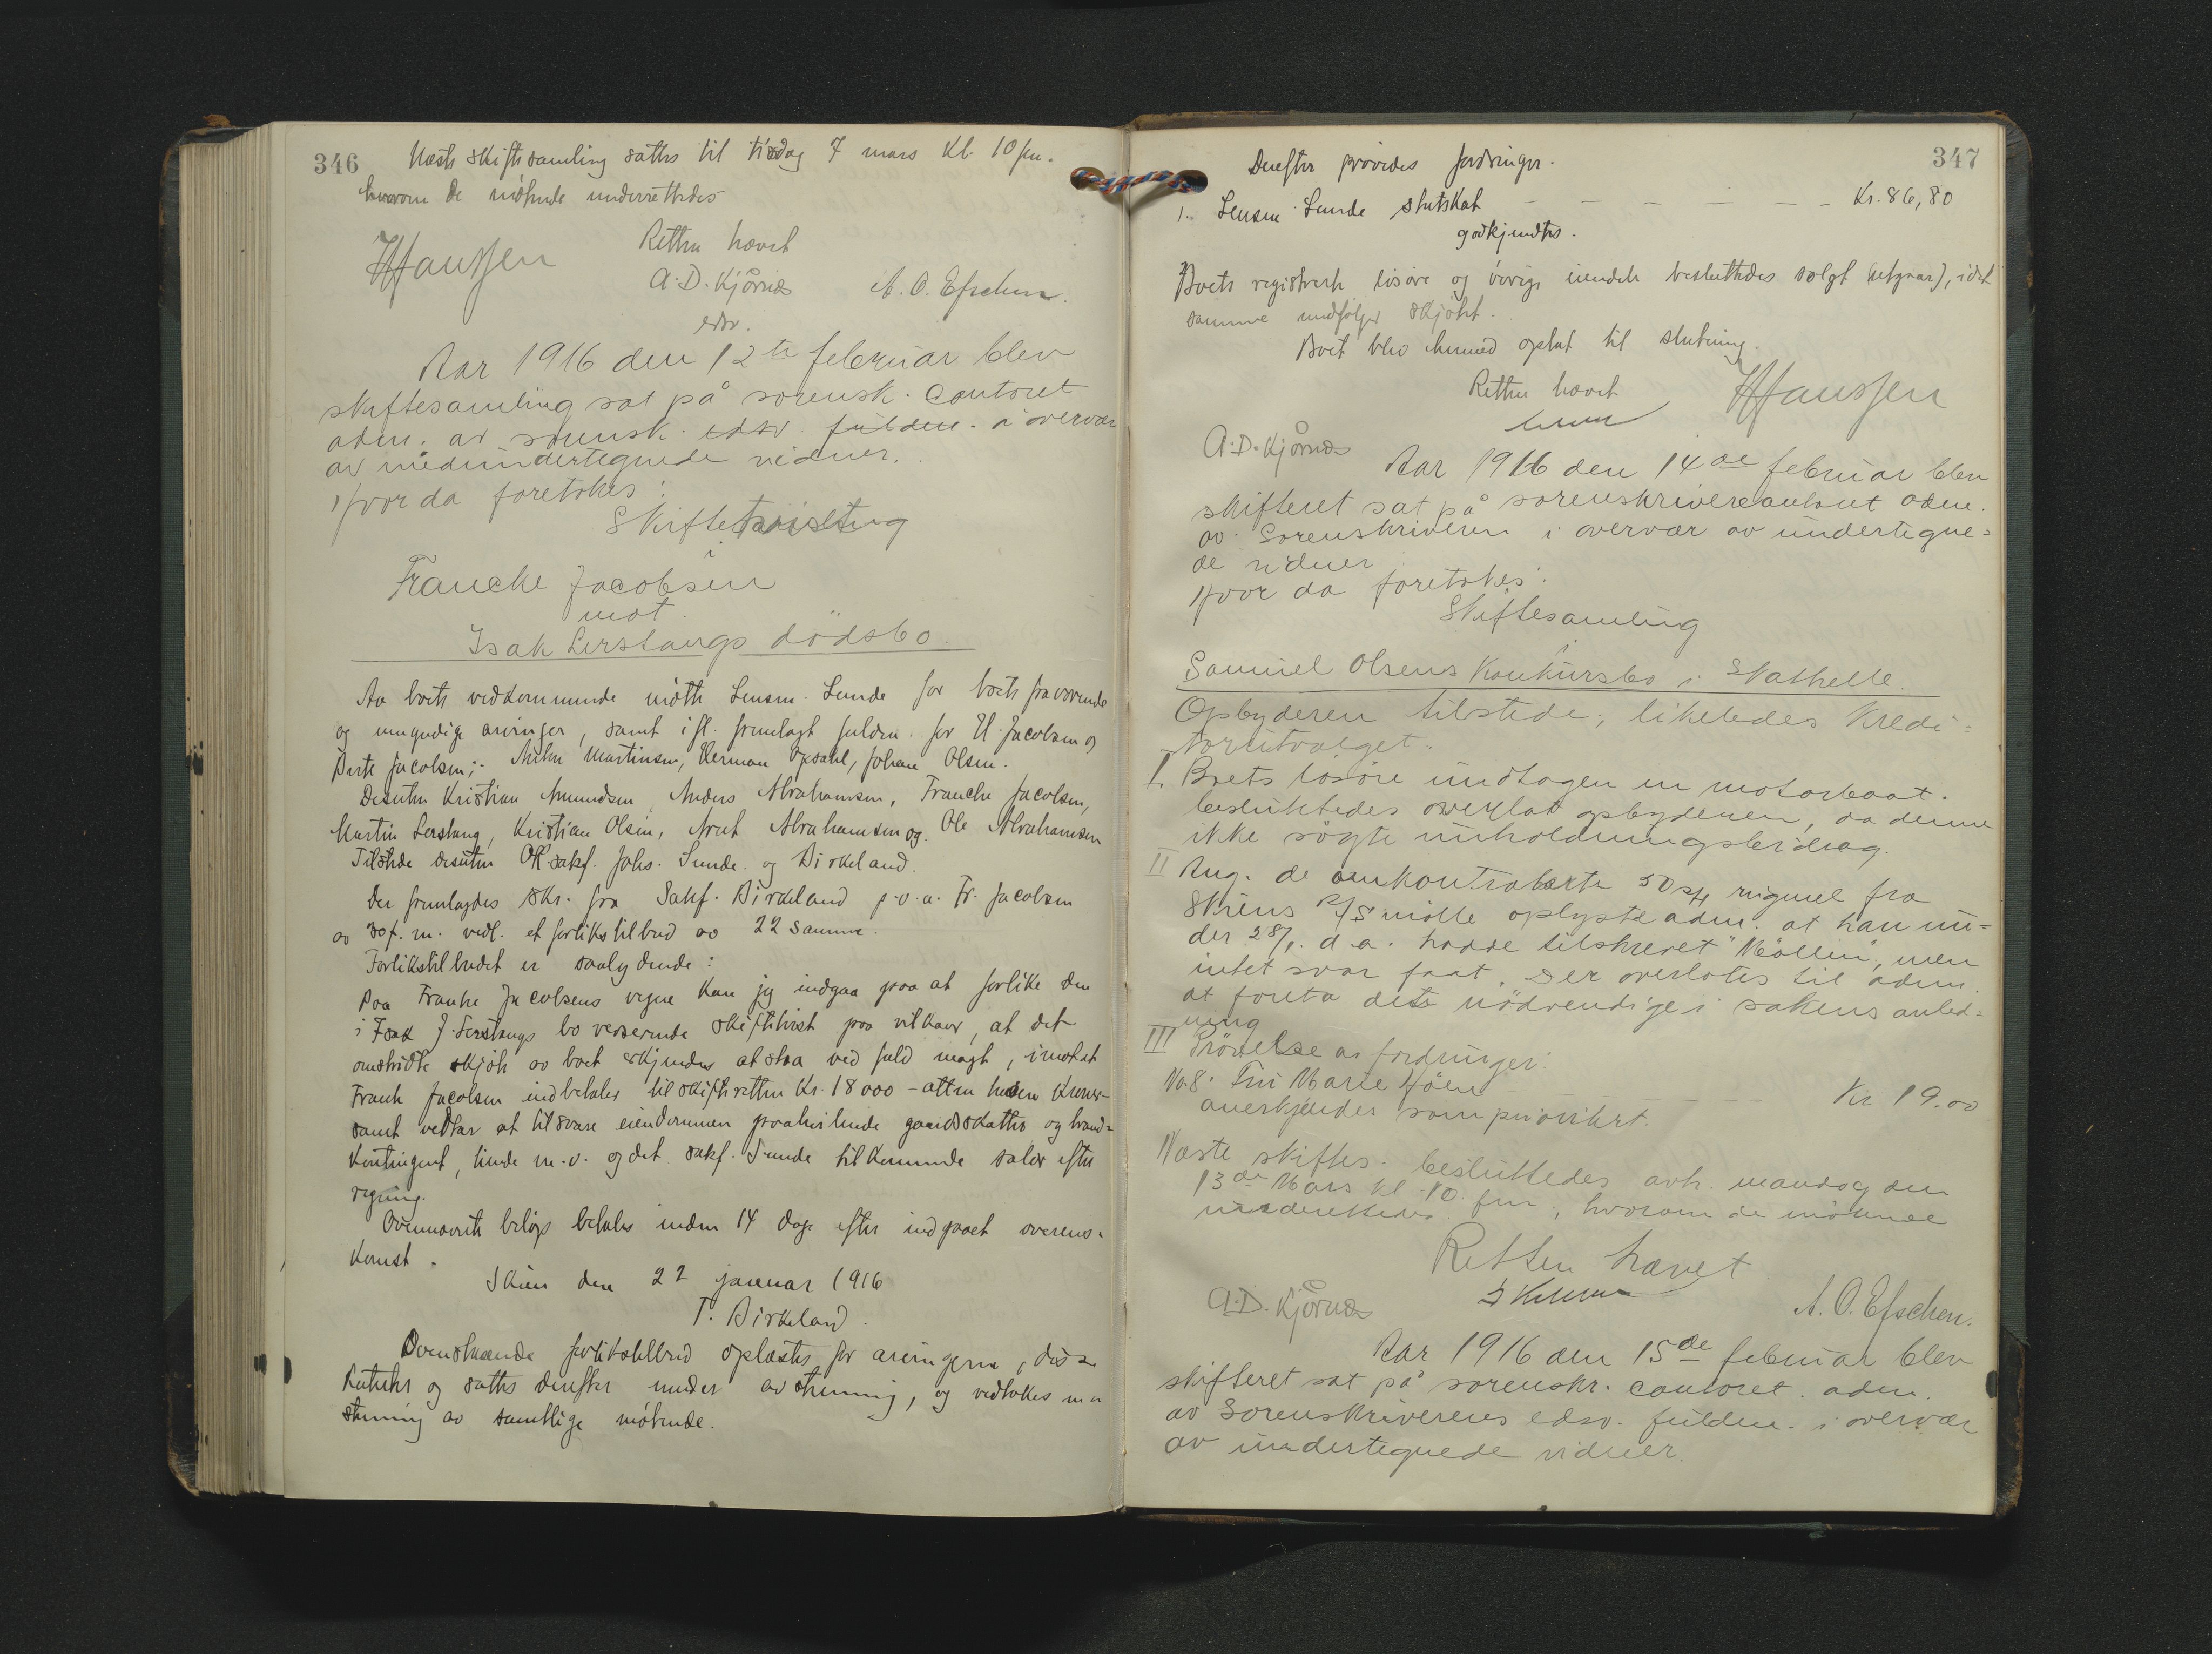 346
Næste skiftesamling sattes til tirsdag 7 mars Kl. 10 fm.
hvorom de møtende underrettedes
Retten hævet
HHanssen
A. D. Kjörnæs
A. O. Efschen.
edsv.
Aar 1916 den 12te februar blev
skiftesamling sat på sorensk. contoret
adm. av sorensk. edsv. fuldm. i overvær
av medundertegnede vidner.
Hvor da foretokes:
Skiftetvistng
i
Francke Jacobsen
mot
Isak Lerstangs dödsbo.
Av boets vedkommende mötte Lensm. Lunde for boets fraværende
og umyndige arvinger, samt ifl. fremlagt fuldm. for H. Jacobsen og
Berte Jacobsen; Martinsen, Herman Opdahl, Johan Olsen.
Desuten Kristian Amundsen, Anders Abrahamsen, Francke Jacobsen,
Martin Lerstang, Kristian Olsen, Arnt Abrahamsen og Ole Abrahamsen
Tilstede desuten OR.sakf. Johs. Sunde og Birkeland.
Der fremlagdes skr. fra Sakf. Birkeland p.v.a. Fr. Jacobsen
av 30 f. m. vedl. et forlikstilbud av 22 samme.
Forlikstilbudet er saalydende:
Paa Franke Jacobsens vegne kan jeg indgaa paa at forlike den
i Isak J. Lerstangs bo verserende skiftetvist paa vilkaar, at det
omstridte skjöte av boet erkjendes at staa ved fuld magt, imot at
Frank Jacobsen indbetaler til skifteretten Kr. 18000 - atten tusen kroner -
samt vedtar at tilsvare eiendommen paahvilende gaardsskatter og brand=
kontingent, tiende m.v. og det sakf. Sunde tilkommende salær efter
regning.
Ovennævnte beløp betales inden 14 dage efter indgaaet overens-
komst.
Skien den 22 januar 1916
T. Birkeland.
Ovenstaaende forlikstilbud oplæstes for arvingerne, disse
og sattes derefter under avstemning, og vedtokes ved
stemning av samtlige møtende.
347
Derefter prøvedes fordringer.
1. Lensm. Lunde skatskat - - - - - - Kr. 86,80
godkjendtes.
Boets registrerte løsøre og øvrige eiendele besluttedes solgt (utgaar), idet
samme medfølger skjötet.
Boet blev hermed optat til slutning.
Retten hævet
HHanssen
A. D. Kjörnæs
Aar 1916 den 14de februar blev
skifteret sat på sorenskrivercontoret adm.
av Sorenskriveren i overvær av undertegne=
de vidner
Hvor da foretokes:
Skiftesamling
i
Samuel Olsens Konkursbo i Stathelle.
Opbyderen tilstede, likeledes kredi=
torutvalget.
I. Boets løsøre undtagen en motorbaat.
besluttedes overlat opbyderen, da denne
ikke søgte underholdningsbidrag.
II Ang. de omkontraherte 50 sk rugmel fra
Skiens A/S mölle oplyste adm. at han un=
der 28/1. d.a. hadde tilskrevet "Möllen", men
intet svar faat. Der overlotes til adm.
at foreta det nödvendige i sakens anled=
ning
III Prövelse av fordringer:
No. 8. Fru Marie Höen - - - - - - Kr 19.00
anerkjendes som prioritert.
Næste skiftes. besluttedes avh. mandag den
13de Mars kl. 10. fm., hvorom de mötende
underrettedes.
Retten hævet
A. D. Kjörnæs
A. O. Efschen.
Aar 1916 den 15de februar blev
skifteret sat på sorenskr. contoret. adm.
av Sorenskriverens edsv. fuldm. i overvær
av undertegnede vidner.